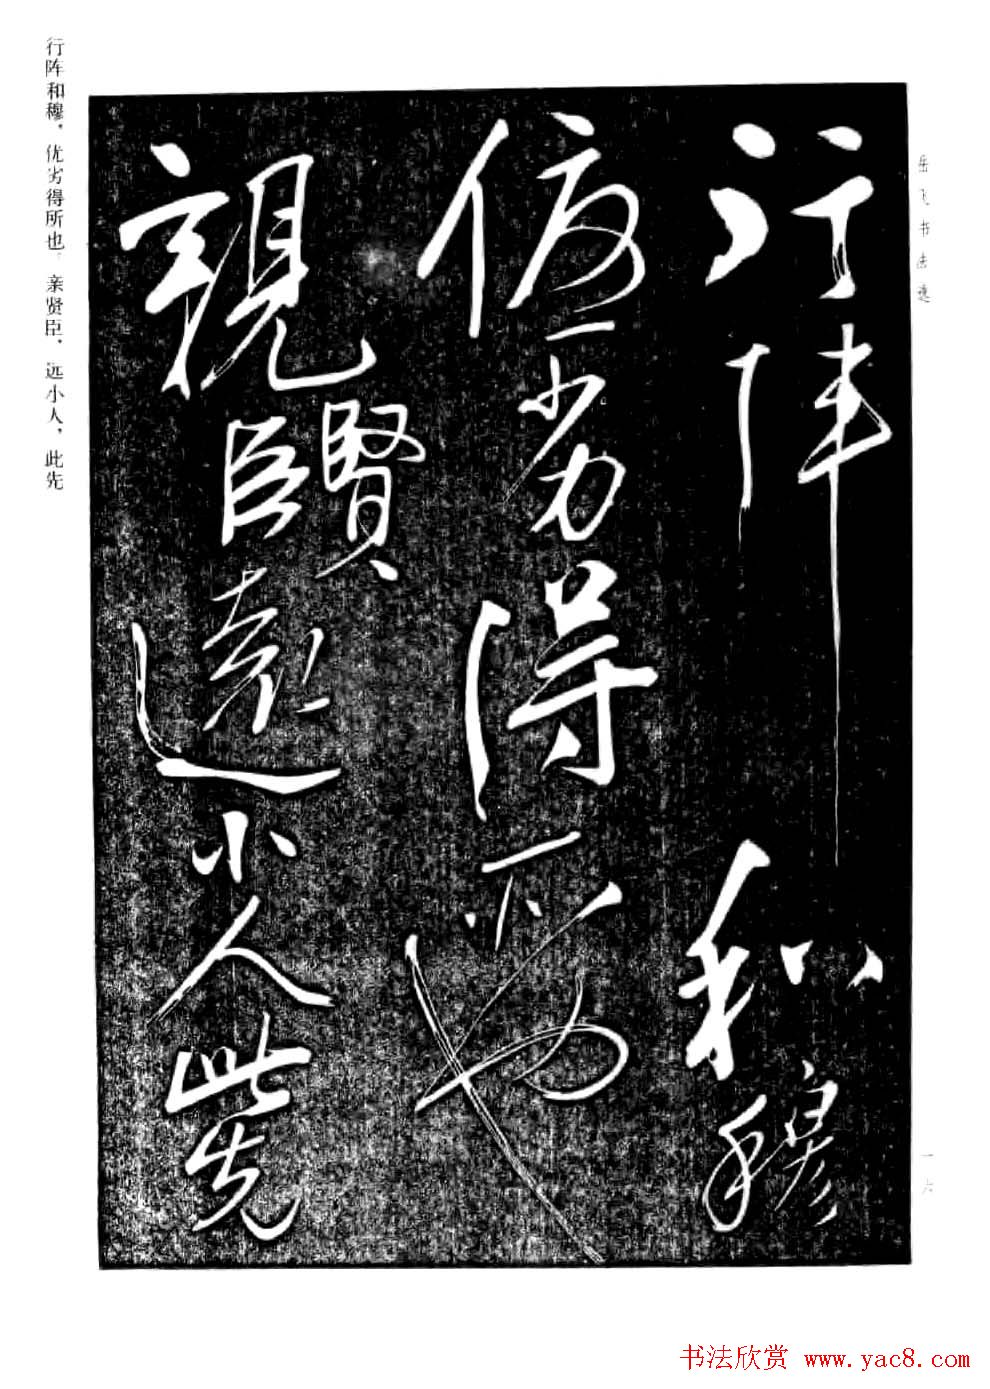 岳飞书法选
行陣和穆
優劣得所也
親賢臣遠小人此先
行阵和穆，优劣得所也。亲贤臣，远小人，此先
一六
书法欣赏 www.yac8.com